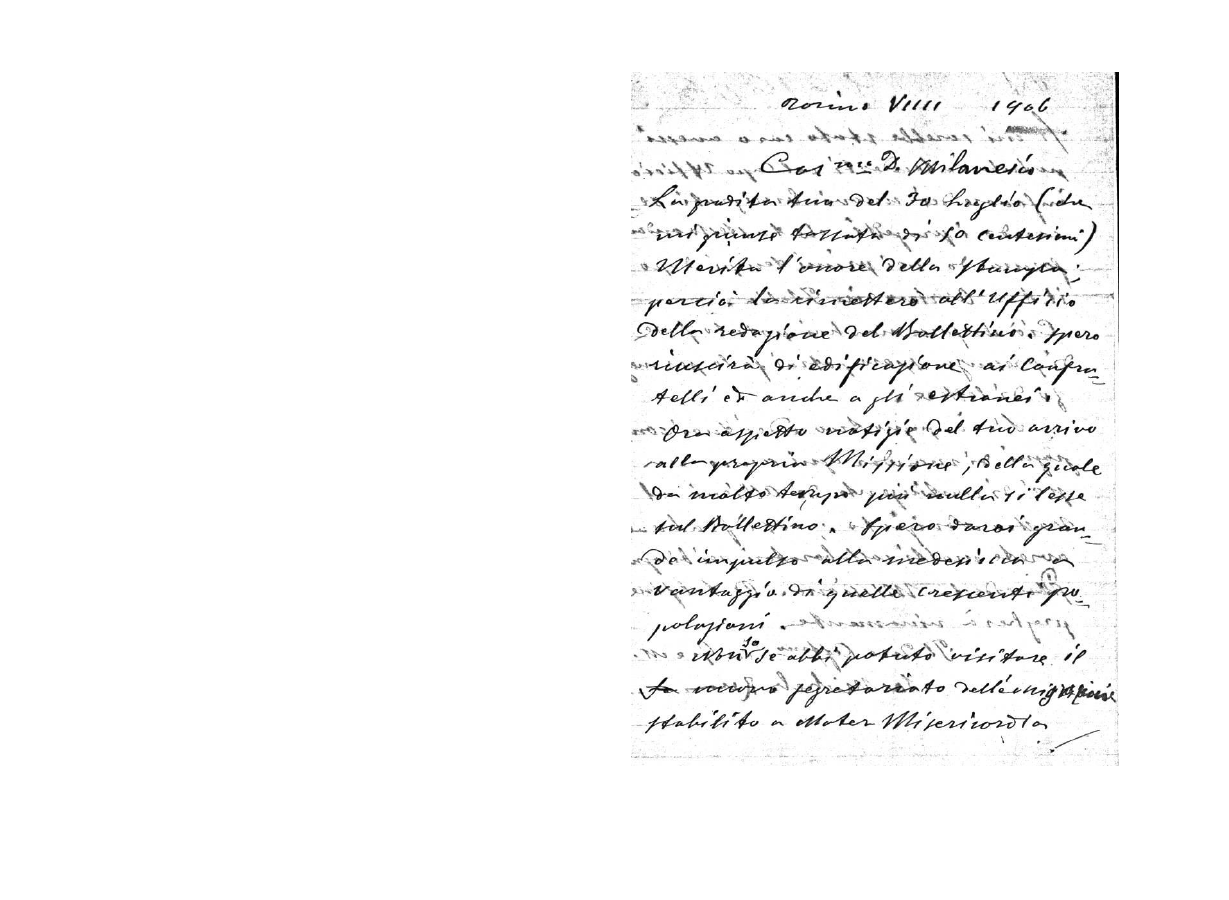 Torino VIIII 1906
Car mo D. Milanesio
La gradita tua del 30 luglio (che
mi giunse tassata di 50 centesimi)
Merita l'onore della stampa;
perciò la rimettero all'Ufficio
della redazione del Bollettino. Spero
riuscirà di edificazione ai Confra=
telli ed anche a gli estranei.
Ora aspetto notizie del tuo arrivo
alla propria Missione, della quale
da molto tempo più nulla si lesse
sul Bollettino. Spero darai gran=
de impulso alla medesima a
vantaggio di quelle crescenti po=
polazioni.
Non so se abbi potuto visitare il
nuovo segretariato dell'emigrazione
stabilito a Mater Misericordia